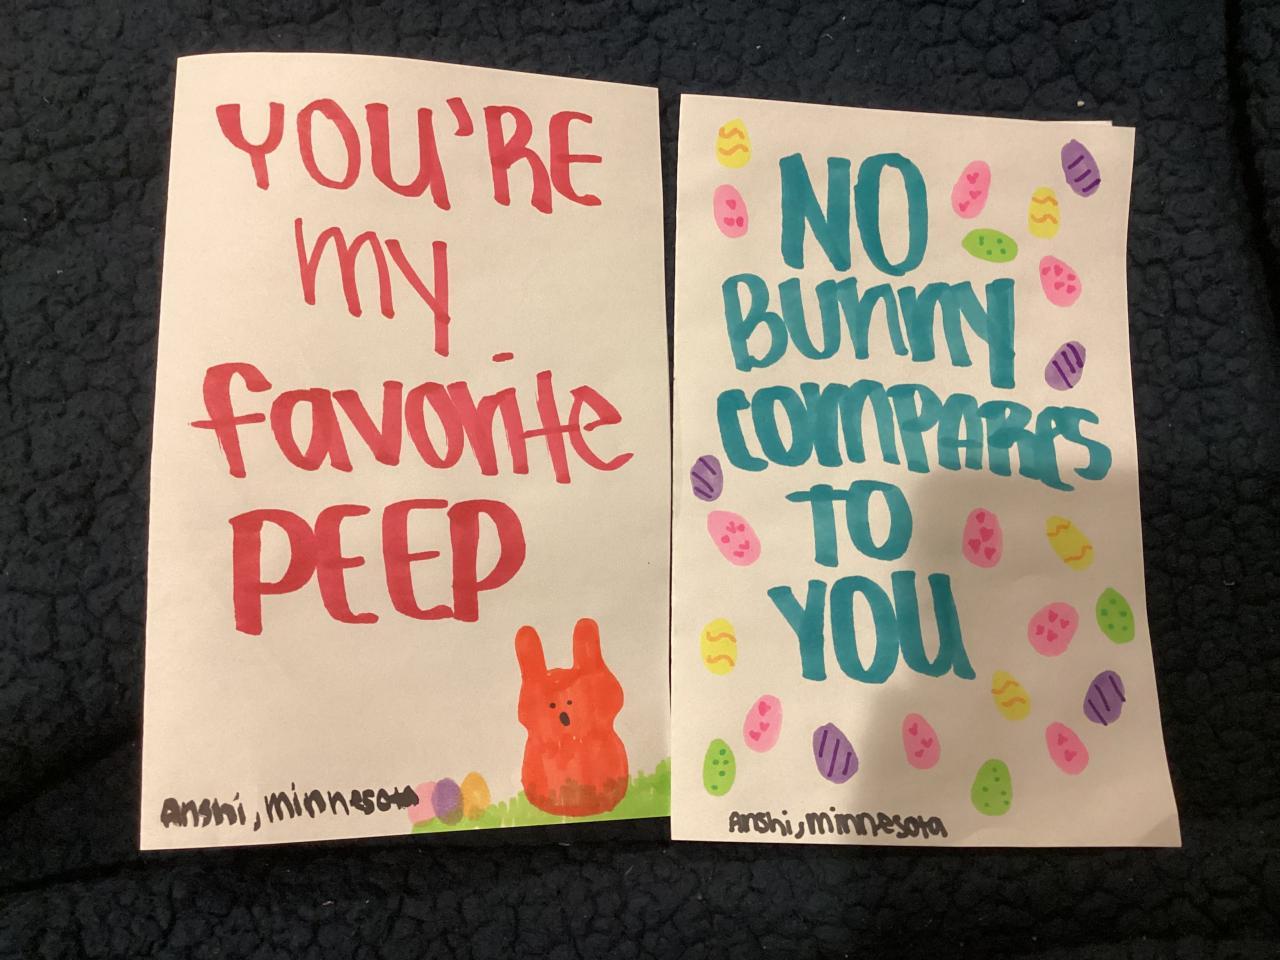 YOU'RE
my
favorite
PEEP
Anshi, minnesota
NO
Bunny
COMPARES
TO
YOU
Anshi, minnesota